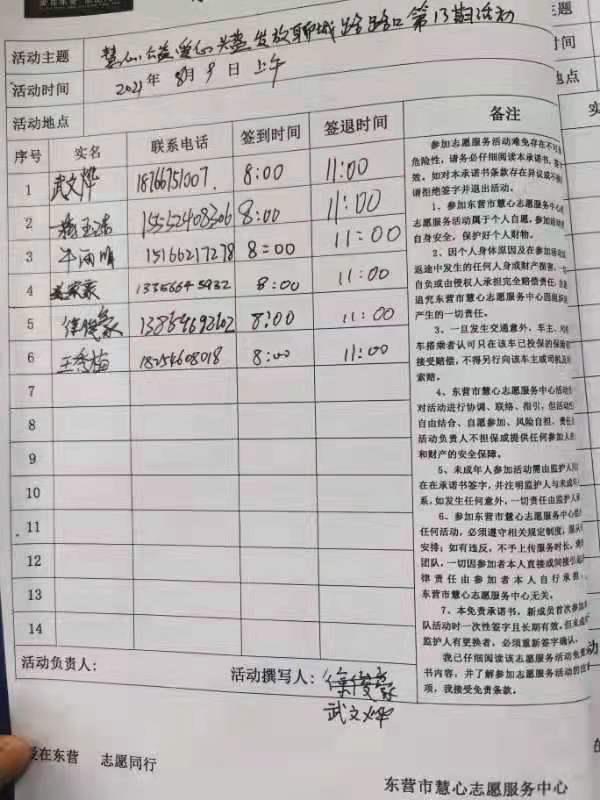 活动主题 慧心公益爱心义粥发放聊城路路口第13期活动
活动时间 2021年 8月 9日 上午
活动地点
序号 实名 联系电话 签到时间 签退时间 备注
1 武文烨 18766751007 8:00 11:00
2 8:00 11:00
3 15166217278 8:00 11:00
4 8:00 11:00
5 徐俊家 8:00 11:00
6 王秀梅 18254608018 8:00 11:00
7
8
9
10
11
12
13
14
参加志愿服务活动难免存在不可
危险性,请务必仔细阅读本承诺书,签
效。如对本承诺书条款存在异议或不
请拒绝签字并退出活动。
1、参加东营市慧心志愿服务中心
志愿服务活动属于个人自愿,参加
自身安全,保护好个人财物。
2、因个人身体原因及在参加活动
返途中发生的任何人身或财产损害,
自负或由侵权人承担完全赔偿责任,
追究东营市慧心志愿服务中心因组织
产生的一切责任。
3、一旦发生交通意外,车主、
车搭乘者认可只在该车已投保的保险
接受赔偿,不得另行向该车主或司机
索赔。
4、东营市慧心志愿服务中心活动
对活动进行协调、联络、指引,但活动
自由结合、自愿参加、风险自担、责任
活动负责人不担保或提供任何参加人
和财产的安全保障。
5、未成年人参加活动需由监护人
在在承诺书签字,并注明监护人与未成年
系,如发生任何意外,一切责任由监护人承
6、参加东营市慧心志愿服务中心
任何活动,必须遵守相关规定制度,服从
安排;如有违反,不予上传服务时长,
团队,一切因参加者本人直接或间接引起
律责任由参加者本人自行承担,
东营市慧心志愿服务中心无关。
7、本免责承诺书,新成员首次参加
队活动时一次性签字且长期有效,但未成
监护人有更换者,必须重新签字确认。
我已仔细阅读该志愿服务活动免责
书内容,并了解参加志愿服务活动的
项,我接受免责条款。
活动负责人: 活动撰写人: 徐俊家
武文烨
爱在东营 志愿同行
东营市慧心志愿服务中心
主题
时间
地点